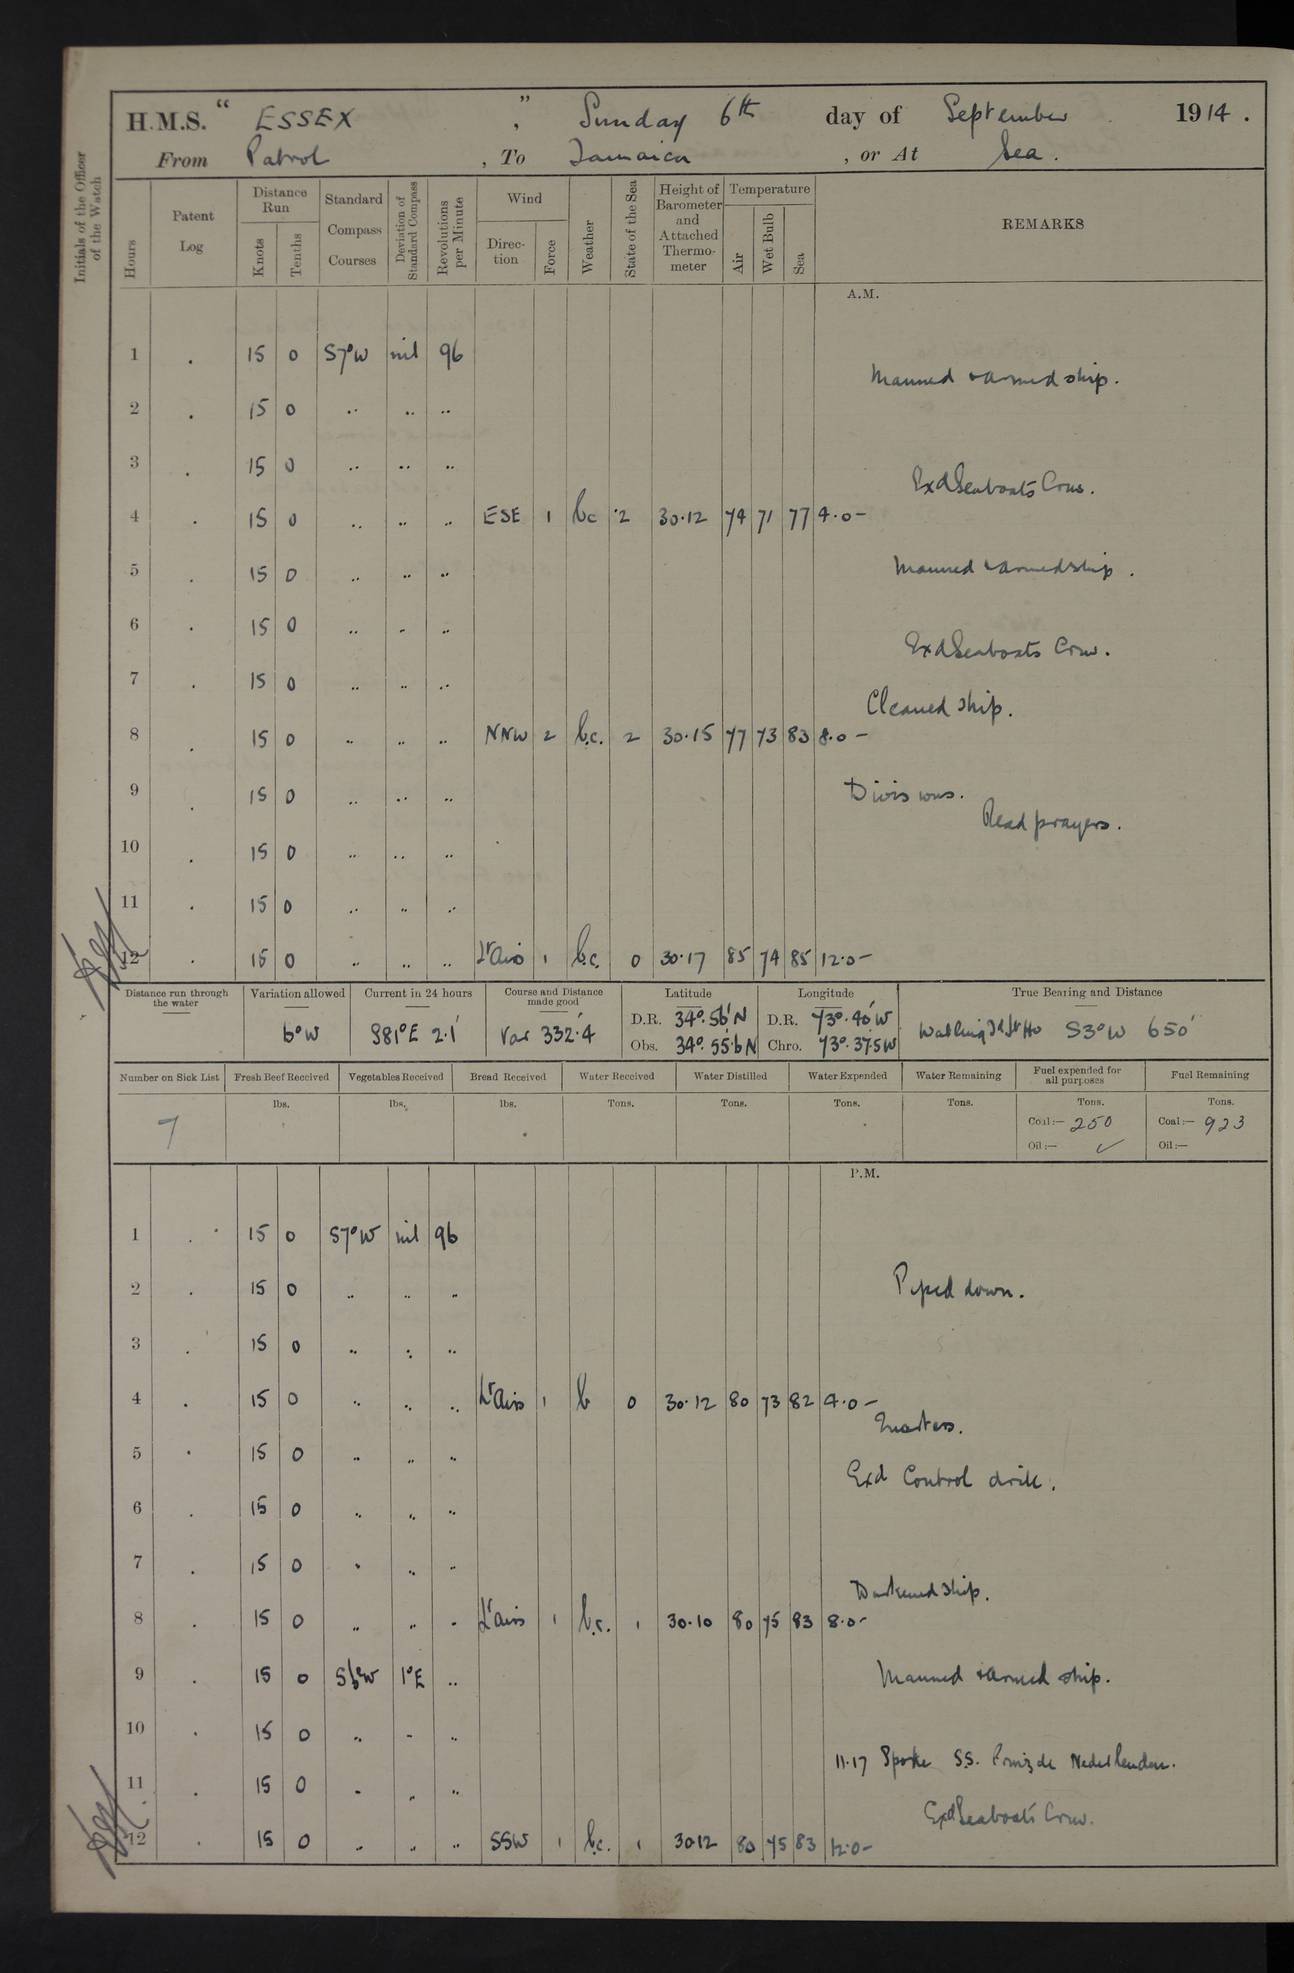 H.M.S. “ ESSEX ” , Sunday 6th day of September 1914 .
From Patrol , To Jamaica , or At Sea .
Initials of the Officer of the Watch
Hours Patent Log Distance Run Knots Tenths Standard Compass Courses Deviation of Standard Compass Revolutions per Minute Wind Direc-tion Force Weather State of the Sea Height of Barometer and Attached Thermo-meter Temperature Air Wet Bulb Sea REMARKS
A.M.
1 . 15 0 S7°W nil 96
Manned & armed ship.
2 . 15 0 .. .. ..
3 . 15 0 .. .. ..
Exd Seaboats Crew.
4 . 15 0 .. .. .. ESE 1 bc 2 30.12 74 71 77 4.0 –
5 . 15 0 .. .. ..
Manned & armed ship .
6 . 15 0 .. .. ..
Exd Seaboats Crew.
7 . 15 0 .. .. ..
Cleaned ship.
8 . 15 0 .. .. .. NNW 2 b.c. 2 30.15 77 73 83 8.0 –
9 . 15 0 .. .. ..
Divisions.
Read prayers.
10 . 15 0 .. .. ..
11 . 15 0 .. .. ..
12 . 15 0 .. .. .. Lt Airs 1 b.c. 0 30.17 85 74 85 12.0 –
Distance run through the water Variation allowed Current in 24 hours Course and Distance made good Latitude Longitude True Bearing and Distance
6°W S81°E 2.1' Var 332.4 D.R. 34°.56'N D.R. 73°.40'W S3°W 650'
Obs. 34°.55.6N Chro. 73°.37.5W
Number on Sick List Fresh Beef Received Vegetables Received Bread Received Water Received Water Distilled Water Expended Water Remaining Fuel expended for all purposes Fuel Remaining
lbs. lbs. lbs. Tons. Tons. Tons. Tons. Tons. Tons.
7 Coal :— 250 Coal :— 923
Oil :— ✓ Oil :—
P.M.
1 . 15 0 S7°W nil 96
2 . 15 0 .. .. .. Piped down.
3 . 15 0 .. .. ..
4 . 15 0 .. .. .. Lt Airs 1 b 0 30.12 80 73 82 4.0 –
Quarters.
5 . 15 0 .. .. ..
Exd Control drill.
6 . 15 0 .. .. ..
7 . 15 0 .. .. ..
Darkened ship.
8 . 15 0 .. .. .. Lt airs 1 b.c. 1 30.10 80 75 83 8.0 –
9 . 15 0 S6°W 1°E .. Manned & armed ship.
10 . 15 0 .. .. ..
11.17 Spoke S.S. Prinz de Nederlanden.
11 . 15 0 .. .. ..
Exd Seaboats Crew.
12 . 15 0 .. .. .. SSW 1 b.c. 1 3012 80 75 83 12.0 –